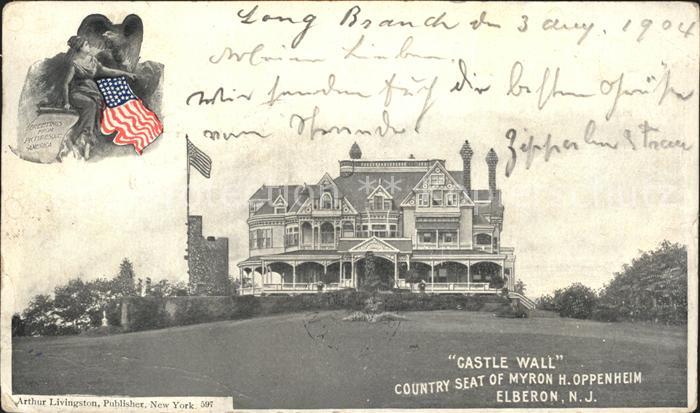 Long Branch den 3 Aug. 1904
Meine Lieben.
Wir senden Euch die besten Grüße
vom Strande.
GREETINGS
FROM
PICTURESQUE
AMERICA
"CASTLE WALL"
COUNTRY SEAT OF MYRON H. OPPENHEIM
ELBERON, N.J.
Arthur Livingston, Publisher, New York. 597